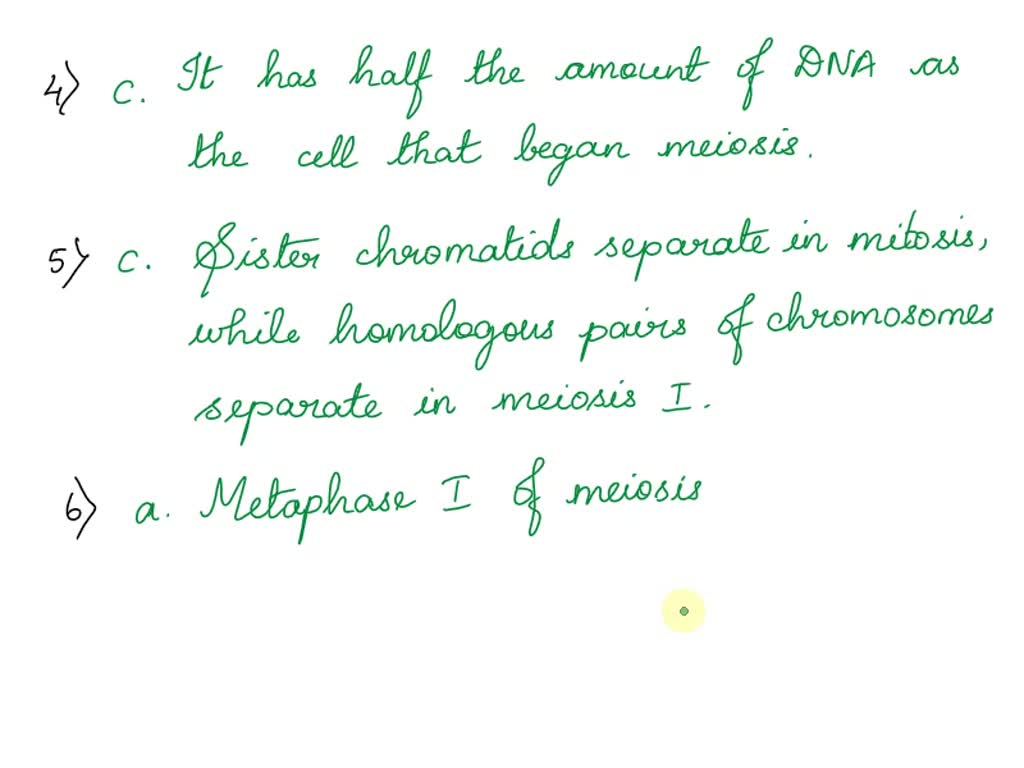 4) c. It has half the amount of DNA as
the cell that began meiosis.
5) c. Sister chromatids separate in mitosis,
while homologous pairs of chromosomes
separate in meiosis I.
6) a. Metaphase I of meiosis